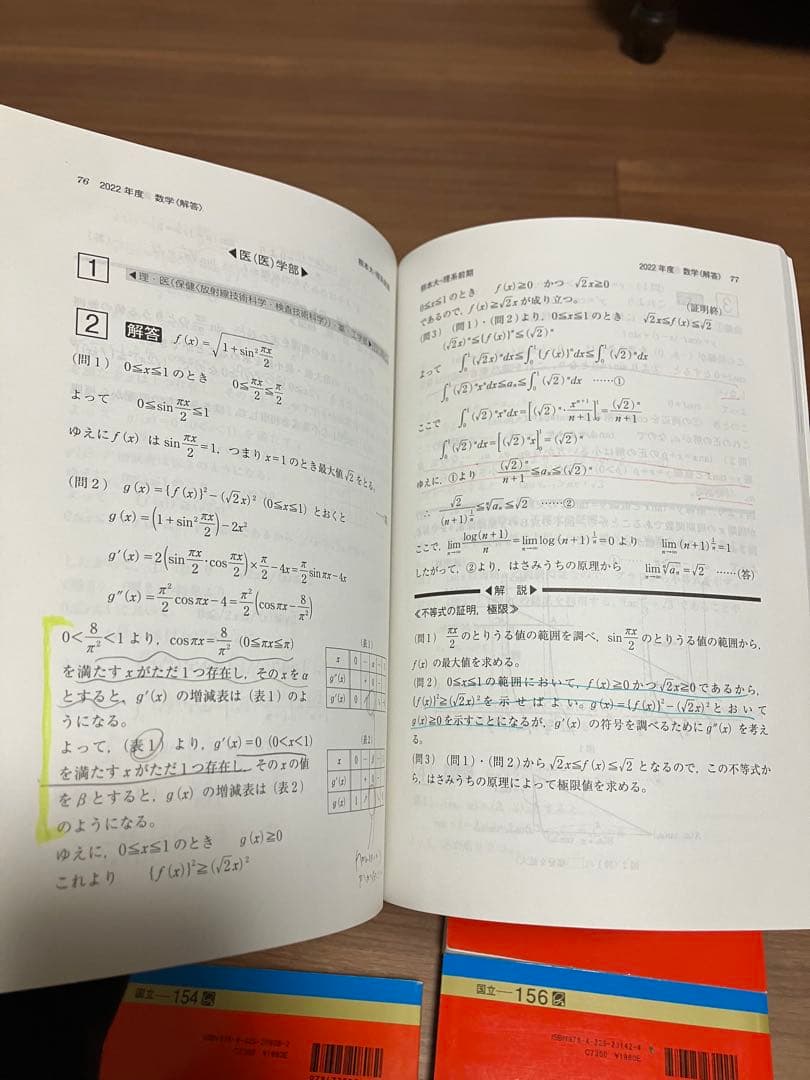 76 2022年度 数学〈解答〉
◀医(医)学部▶
熊本大-理系前期
1
◀理・医(保健〈放射線技術科学・検査技術科学〉)・薬・工学部▶
2 解答 f(x)=√(1+sin²πx/2)
(問1) 0≦x≦1のとき 0≦πx/2≦π/2
よって 0≦sinπx/2≦1
ゆえにf(x)はsinπx/2=1, つまりx=1のとき最大値√2をとる。
(問2) g(x)={f(x)}²-(√2x)² (0≦x≦1) とおくと
g(x)=(1+sin²πx/2)-2x²
g′(x)=2(sinπx/2・cosπx/2)×π/2-4x=π/2sinπx-4x
g″(x)=π²/2cosπx-4=π²/2(cosπx-8/π²)
0<8/π²<1より, cosπx=8/π² (0≦πx≦π)
を満たすxがただ1つ存在し, そのxをα
とすると, g′(x)の増減表は(表1)のよ
うになる。
よって, (表1)より, g′(x)=0 (0<x<1)
を満たすxがただ1つ存在し, そのxの値
をβとすると, g(x)の増減表は(表2)
のようになる。
ゆえに, 0≦x≦1のとき g(x)≧0
これより {f(x)}²≧(√2x)²
(表1)
x 0
g″(x)
g′(x) 0
(表2)
x 0
g′(x)
g(x) 1
熊本大-理系前期
2022年度 数学〈解答〉 77
0≦x≦1のとき f(x)≧0 かつ √2x≧0
であるので, f(x)≧√2xが成り立つ。
(証明終)
(問3) (問1)・(問2)より, 0≦x≦1のとき √2x≦f(x)≦√2
(√2x)ⁿ≦{f(x)}ⁿ≦(√2)ⁿ
よって ∫₀¹(√2x)ⁿdx≦∫₀¹{f(x)}ⁿdx≦∫₀¹(√2)ⁿdx
∫₀¹(√2)ⁿxⁿdx≦aₙ≦∫₀¹(√2)ⁿdx ……①
ここで ∫₀¹(√2)ⁿxⁿdx=[(√2)ⁿ・xⁿ⁺¹/n+1]₀¹=(√2)ⁿ/n+1
∫₀¹(√2)ⁿdx=[(√2)ⁿx]₀¹=(√2)ⁿ
ゆえに, ①より (√2)ⁿ/n+1≦aₙ≦(√2)ⁿ
∴ √2/(n+1)^(1/n)≦ⁿ√aₙ≦√2 ……②
ここで, lim(n→∞) log(n+1)/n=lim(n→∞) log(n+1)^(1/n)=0より lim(n→∞)(n+1)^(1/n)=1
したがって, ②より, はさみうちの原理から lim(n→∞)ⁿ√aₙ=√2 ……(答)
◀解 説▶
≪不等式の証明, 極限≫
(問1) πx/2のとりうる値の範囲を調べ, sinπx/2のとりうる値の範囲から,
f(x)の最大値を求める。
(問2) 0≦x≦1の範囲において, f(x)≧0かつ√2x≧0であるから,
{f(x)}²≧(√2x)²を示せばよい。g(x)={f(x)}²-(√2x)²とおいて
g(x)≧0を示すことになるが, g′(x)の符号を調べるためにg″(x)を考え
る。
(問3) (問1)・(問2)から√2x≦f(x)≦√2となるので, この不等式か
ら, はさみうちの原理によって極限値を求める。
国立―154
C7300 ¥1980E
国立―156
C7300 ¥1980E